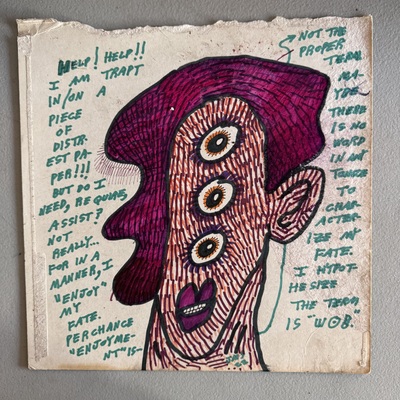 HELP! HELP!!
I AM TRAPT
IN/ON A
PIECE
OF
DISTR-
EST PA-
PER!!!
BUT DO I
NEED, REQUIRE,
ASSIST?
NOT
REALLY...
FOR IN A
MANNER, I
"ENJOY"
MY
FATE.
PERCHANCE
"ENJOYME-
NT" IS-
NOT THE
PROPER
TERM.
MA-
YBE
THERE
IS NO
WORD
IN ANY
TONGUE
TO
CHAR-
ACTER-
IZE MY
FATE.
I HYPOT-
HESIZE
THE TERM
IS "WOB."